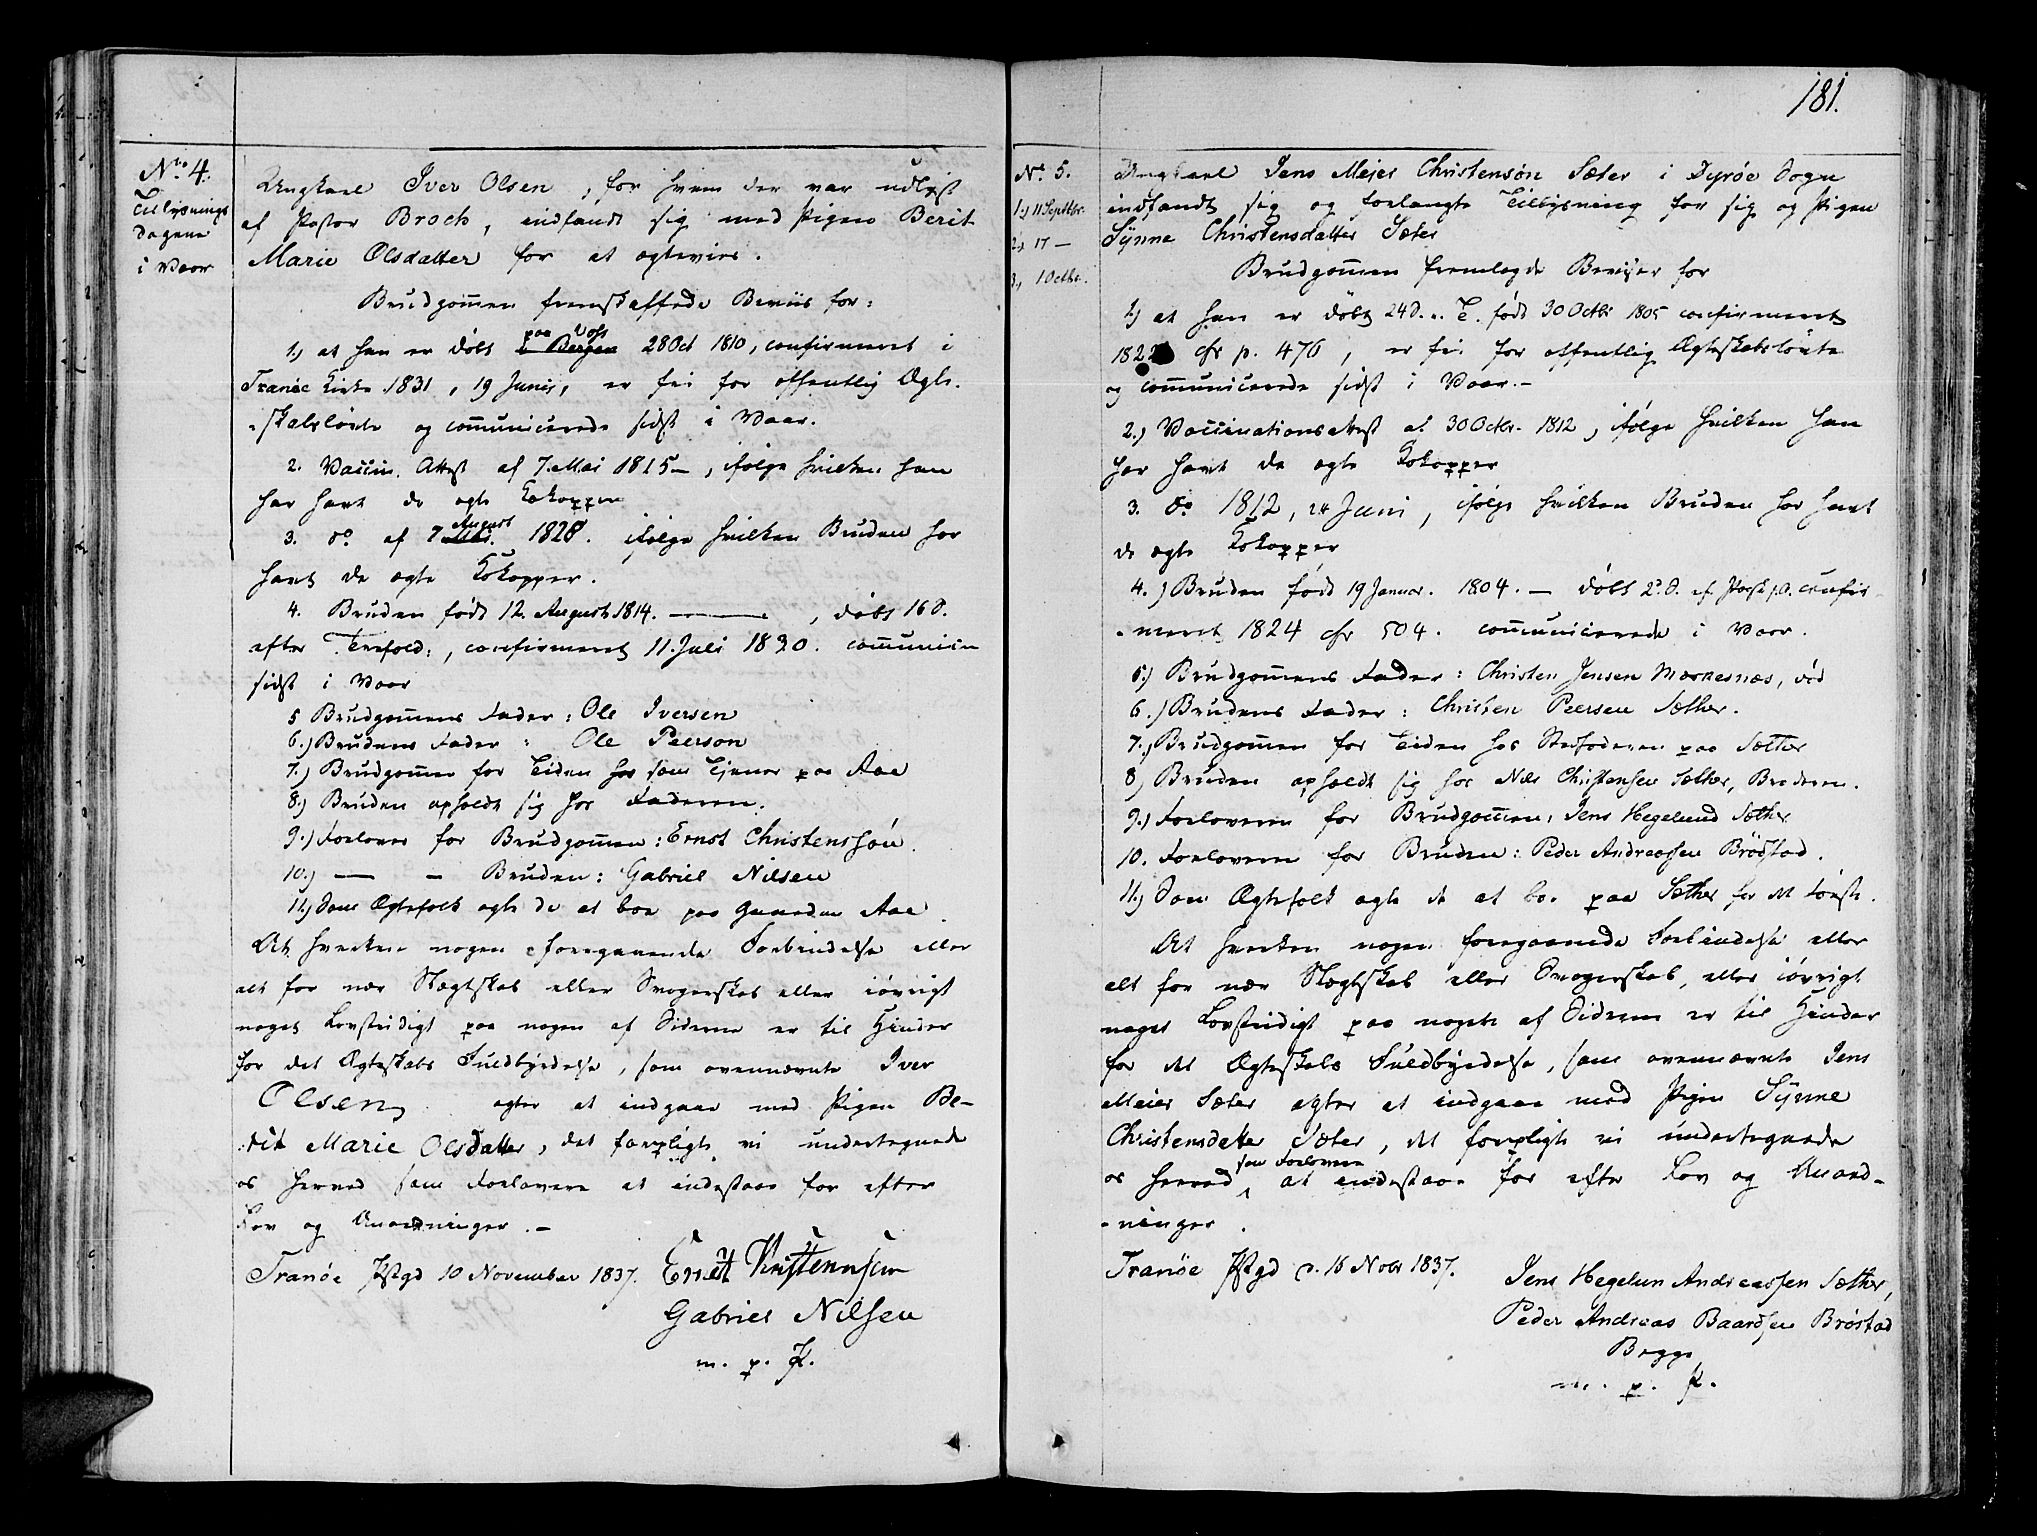 No. 4.
Tillysnings
dagene
i Vaar
Ungkarl Iver Olsen, for hvem der var udlyst
af Pastor Broch, indfandt sig med Pigen Berit
Marie Olsdatter for at ægtevies.
Brudgommen fremskaffede Beviis for:
1.) at han er døbt paa Vos 28 Oct 1810, confirmeret i
Tranøe Kirke 1831, 19 Junii, er fri for offentlig Ægte-
skabsløvte og communicerede sidst i Vaar.
2. Vaccin. Attest af 7. Mai 1815 –, ifølge hvilken han
har havt de ægte Kokopper
3. do af 7 August 1828. ifølge hvilken Bruden har
havt de ægte Kokopper.
4. Bruden født 12. August 1814. —— , døbt 16 S.
efter Trefold:, confirmeret 11. Juli 1830. communicen
sidst i Vaar
5 Brudgommens Fader: Ole Iversen
6.) Brudens Fader: Ole Peerson
7.) Brudgommen for Tiden her som Tjener paa Aae
8.) Bruden opholdt sig hos Faderen.
9.) Forlover for Brudgommen: Ernst Christenssøn.
10.) — – Bruden: Gabriel Nilsen
11.) Som Ægtefolk agte de at boe paa Gaarden Aae.
At hverken nogen foregaaende Forbindelse eller
alt for nær Slægtskab eller Svogerskab eller iøvrigt
noget Lovstridigt paa nogen af Siderne er til Hinder
for det Ægteskabs Fuldbyrdelse, som ovennævnte Iver
Olsen agter at indgaae med Pigen Be-
rit Marie Olsdatter, det forpligte vi undertegnede
os herved som Forlovere at indestaae for efter
Lov og Anordninger. –
Tranøe Pstgd 10 November 1837. Ernst Kristennsen
Gabriel Nilsen
m. p. P.
181.
No. 5.
1.) 11 Septbr.
2.) 17 –
3, 1 Octbr.
Ungkarl Jens Mejer Christensøn Sæter i Dyrøe Sogn
indfandt sig og forlangte Tillysning for sig og Pigen
Synne Christensdatter Sæter
Brudgommen fremlagde Beviser for
1.) at han er døbt 24 S. e. T. født 30 Octbr 1805 confirmeret
182 cfr p. 476, er fri for offentlig Ægteskabsløvte
og communicerede sidst i Vaar. –
2.) Vaccinationsattest af 30 Octbr. 1812, ifølge hvilken han
har havt de ægte Kokopper
3. do 1812, 24 Juni, ifølge hvilken Bruden har havt
de ægte Kokopper
4.) Bruden født 19 Januar. 1804. – døbt 2. S. ef Paaske. confir-
meret 1824 cfr 504. communicerede i Vaar.
5.) Brudgommens Fader: Christen Jensen Moonesnæs, død
6.) Brudens Fader: Christen Peersen Sæther.
7.) Brudgommen for Tiden hos Stedfaderen paa Sæther
8) Bruden opholdt sig hos Nils Christensen Sæther, Broderen.
9.) Forloveren for Brudgommen: Jens Hegelund Sæther
10. Forloveren for Bruden: Peder Andreassen Brøstad.
11.) Som Ægtefolk agte de at boe paa Sæther for det første.
At hverken nogen foregaaende Forbindelse eller
alt for nær Slægtskab eller Svogerskab, eller iøvrigt
noget Lovstridigt paa nogen af Siderne er til Hinder
for det Ægteskabs Fuldbyrdelse, som ovennævnte Jens
Meier Sæter agter at indgaae med Pigen Synne
Christensdatter Sæter, det forpligte vi undertegnede
os herved som Forlovere at indestaae for efter Lov og Anord-
ninger.
Tranøe Pstgd d. 16 Novbr 1837. Jens Hegelun Andreassen Sæther,
Peder Andreas Baardsen Brøstad
Begge
m. p. P.